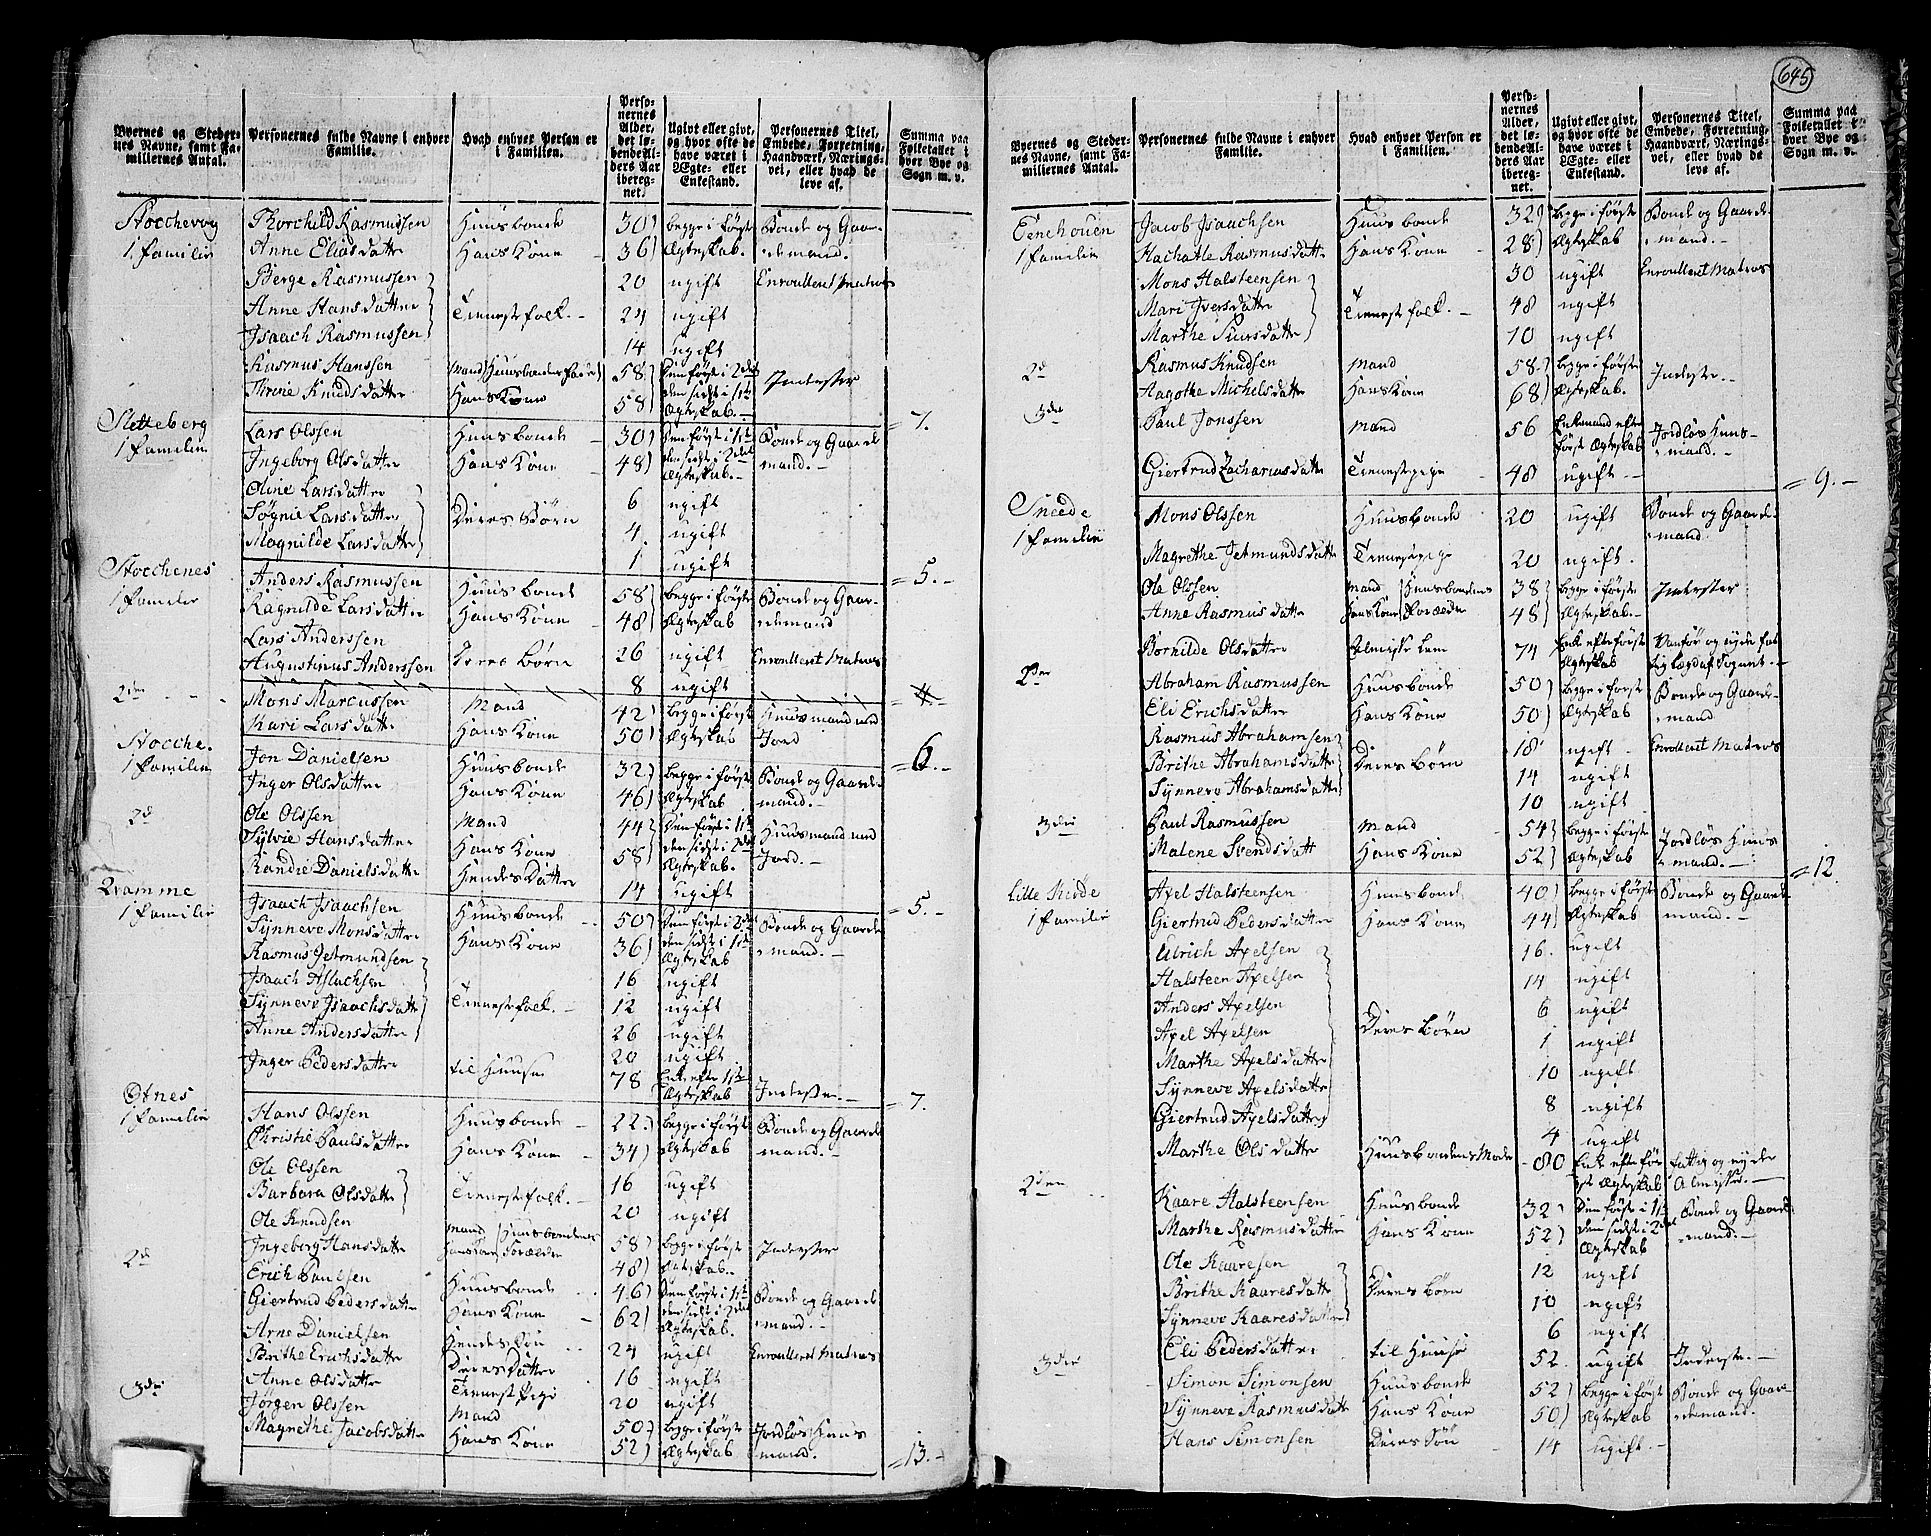 645
Byernes og Stedernes Navne, samt Familiernes Antal. | Personernes fulde Navne i enhver Familie. | Hvad enhver Person er i Familien. | Personernes Alder, det løbende Alders Aar iberegnet. | Ugivt eller givt, og hvor ofte de have været i Ægte- eller Enkestand. | Personernes Titel, Embede, Forretning, Haandværk, Næringsvei, eller hvad de leve af. | Summa paa Folketallet i hver Bye og Sogn m. v.
Stochevog | Thorchild Rasmussen | Huusbonde | 30 | begge i første | Bonde og Gaar-
1 familie | Anne Eliasdatter | Hans Kone | 36 | Ægteskab. | demand.
Berge Rasmussen | 20 | ugift | Enroulleret Matros
Anne Hansdatter | Tienestefolk. | 24 | ugift
Isaach Rasmussen | 14 | ugift
Rasmus Hanssen | mand | Huusbondes | 58 | Den første i 2det | Inderster
Thrine Knudsdatter | Hans Kone | 58 | den sidste i 1ste Ægteskab. | 7.
Sletteberg | Lars Olssen | Huusbonde | 30 | Den første i 1ste | Bonde og Gaarde
1 familie | Ingeborg Olsdatter | Hans Kone | 48 | den sidste i 2det Ægteskab. | mand.
Oline Larsdatter | 6 | ugift
Søgnie Larsdatter | Deres Børn | 4 | ugift
Magnilde Larsdatter | 1 | ugift | 5.
Stochenes | Anders Rasmussen | Huusbonde | 58 | begge i første | Bonde og Gaar-
1 familie | Ragnilde Larsdatter | Hans Kone | 48 | Ægteskab | demand
Lars Anderssen | 26 | ugift | Enroulleret Matros
Augustinus Anderssen | Deres Børn | 8 | ugift | 4
2den | Mons Marcussen | Mand | 42 | begge i første | Huusmand med
Kari Larsdatter | Hans Kone | 50 | Ægteskab | Jord | 6.
Stoche. | Jon Danielsen | Huusbonde | 32 | begge i første | Bonde og Gaarde
1 familie | Inger Olsdatter | Hans Kone | 46 | Ægteskab | mand.
2d | Ole Olssen | Mand | 44 | Den første i 1ste | Huusmand med
Sylvie Hansdatter | Hans Kone | 58 | den sidste i 2det Ægteskab. | Jord.
Randie Danielsdatter | Hendes Datter | 14 | ugift | 5.
Qvamme | Isaach Isaachsen | Huusbonde | 50 | Den første i 2det | Bonde og Gaarde
1 familie | Synneve Monsdatter | Hans Kone | 36 | den sidste i 1ste Ægteskab | mand.
Rasmus Jetmundsen | 16 | ugift
Isaach Aslachsen | Tienestefolk. | 12 | ugift
Synneve Isaachsdatter | 26 | ugift
Anne Andersdatter | 20 | ugift
Inger Pedersdatter | til Huuse | 78 | Enke efter 1ste Ægteskab | Inderste. | 7.
Otnes | Hans Olssen | Huusbonde | 22 | begge i første | Bonde og Gaarde
1 familie | Christie Paulsdatter | Hans Kone | 34 | Ægteskab | mand.
Ole Olssen | 16 | ugift
Barbara Olsdatter | Tienestefolk. | 20 | ugift
Ole Knudsen | mand | Huusbondens | 58 | begge i første | Inderster
Ingeborg Hansdatter | Hans Kone | Forældre | 48 | Ægteskab.
2d | Erich Paulsen | Huusbonde | 46 | Den første i 1ste | Bonde og Gaarde
Giertrud Pedersdatter | Hans Kone | 62 | den sidste i 2det Ægteskab. | mand.
Arne Danielsen | Hendes Søn | 24 | ugift | Enroulleret Matros
Brithe Erichsdatter | Deres Datter | 16 | ugift
Anne Olsdatter | Tieneste Pige | 20 | ugift
3die | Jørgen Olssen | Mand | 50 | begge i første | Jordløs Huus
Magrethe Jacobsdatter | Hans Kone | 52 | Ægteskab | mand. | 13.
Byernes og Stedernes Navne, samt Familiernes Antal. | Personernes fulde Navne i enhver Familie. | Hvad enhver Person er i Familien. | Personernes Alder, det løbende Alders Aar iberegnet. | Ugivt eller givt, og hvor ofte de have været i Ægte- eller Enkestand. | Personernes Titel, Embede, Forretning, Haandværk, Næringsvei, eller hvad de leve af. | Summa paa Folketallet i hver Bye og Sogn m. v.
Eenehouen | Jacob Isaachsen | Huusbonde | 32 | begge i første | Bonde og Gaarde-
1 familie | Rasmusdatter | Hans Kone | 28 | Ægteskab | mand.
Mons Halsteensen | 30 | ugift | Enroulleret Matros
Mari Iversdatter | Tienestefolk. | 48 | ugift
Marthe Siversdatter | 10 | ugift
2d | Rasmus Knudsen | Mand | 58 | begge i første | Inderste.
Aagothe Michelsdatter | Hans Kone | 68 | Ægteskab.
3die | Paul Jonssen | Mand | 56 | Enkemand efter første Ægteskab | Jordløs Huusmand.
Giertrud Zachariasdatter | Tienestepige | 48 | ugift | 9.
Sneede | Mons Olssen | Huusbonde | 20 | ugift | Bonde og Gaarde-
1 familie | mand.
Magrethe Jetmundsdatter | Tienestepige | 20 | ugift.
Ole Olssen | Mand | Huusbondens | 38 | begge i første | Inderster
Anne Rasmusdatter | Hans Kone | Forældre | 48 | Ægteskab
Borhilde Olsdatter | Almisse Lem | 74 | Enke efter første Ægteskab | Vanfør og nyder Lægd af Sognet.
2den | Abraham Rasmussen | Huusbonde | 50 | begge i første | Bonde og Gaarde-
Eli Erichsdatter | Hans Kone | 50 | Ægteskab | mand
Rasmus Abrahamsen | 18 | ugift | Enroulleret Matros
Brithe Abrahamsdatter | Deres Børn | 14 | ugift
Synneve Abrahamsdatter | 10 | ugift
3die | Paul Rasmussen | Mand | 54 | begge i første | Jordløs Huus
Malene Svendsdatt | Hans Kone | 52 | Ægteskab | mand. | 12.
Lille Riøde | Axel Halsteensen | Huusbonde | 40 | begge i første | Bonde og Gaarde
1 familie | Giertrud Pedersdatter | Hans Kone | 44 | Ægteskab | mand.
Ulrich Axelsen | 16. | ugift
Halsteen Axelsen | 14 | ugift
Anders Axelsen | 6 | ugift
Axel Axelsen | Deres Børn | 1 | ugift
Marthe Axelsdatter | 10 | ugift
Synneve Axelsdatter | 8 | ugift
Giertrud Axelsdatter | 4 | ugift
Marthe Olsdatter | Huusbondens Moder | 80 | Enke efter første Ægteskab | fattig og nyder Almisse.
2den | Kaare Halsteensen | Huusbonde | 32 | Den første i 1ste | Bonde og Gaarde
Marthe Rasmusdatter | Hans Kone | 52 | den sidste i 2det Ægteskab | mand.
Ole Kaaresen | 12 | ugift
Brithe Kaaresdatter | Deres Børn | 10 | ugift
Synneve Kaaresdatter | 6 | ugift
Eli Pedersdatter | til Huuse | 52. | ugift | Inderste.
3die | Simon Simonsen | Huusbonde | 52 | begge i første | Bonde og Gaar-
Synneve Rasmusdatt | Hans Kone | 50 | Ægteskab | demand.
Hans Simonsen | Deres Søn | 14 | ugift